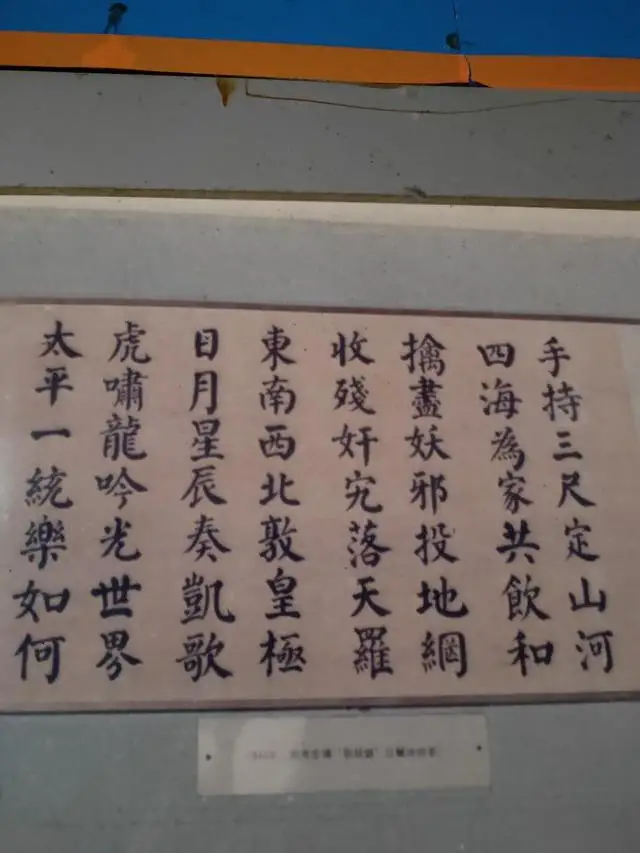 手持三尺定山河
四海為家共飲和
擒盡妖邪投地網
收殘奸宄落天羅
東南西北敦皇極
日月星辰奏凱歌
虎嘯龍吟光世界
太平一統樂如何